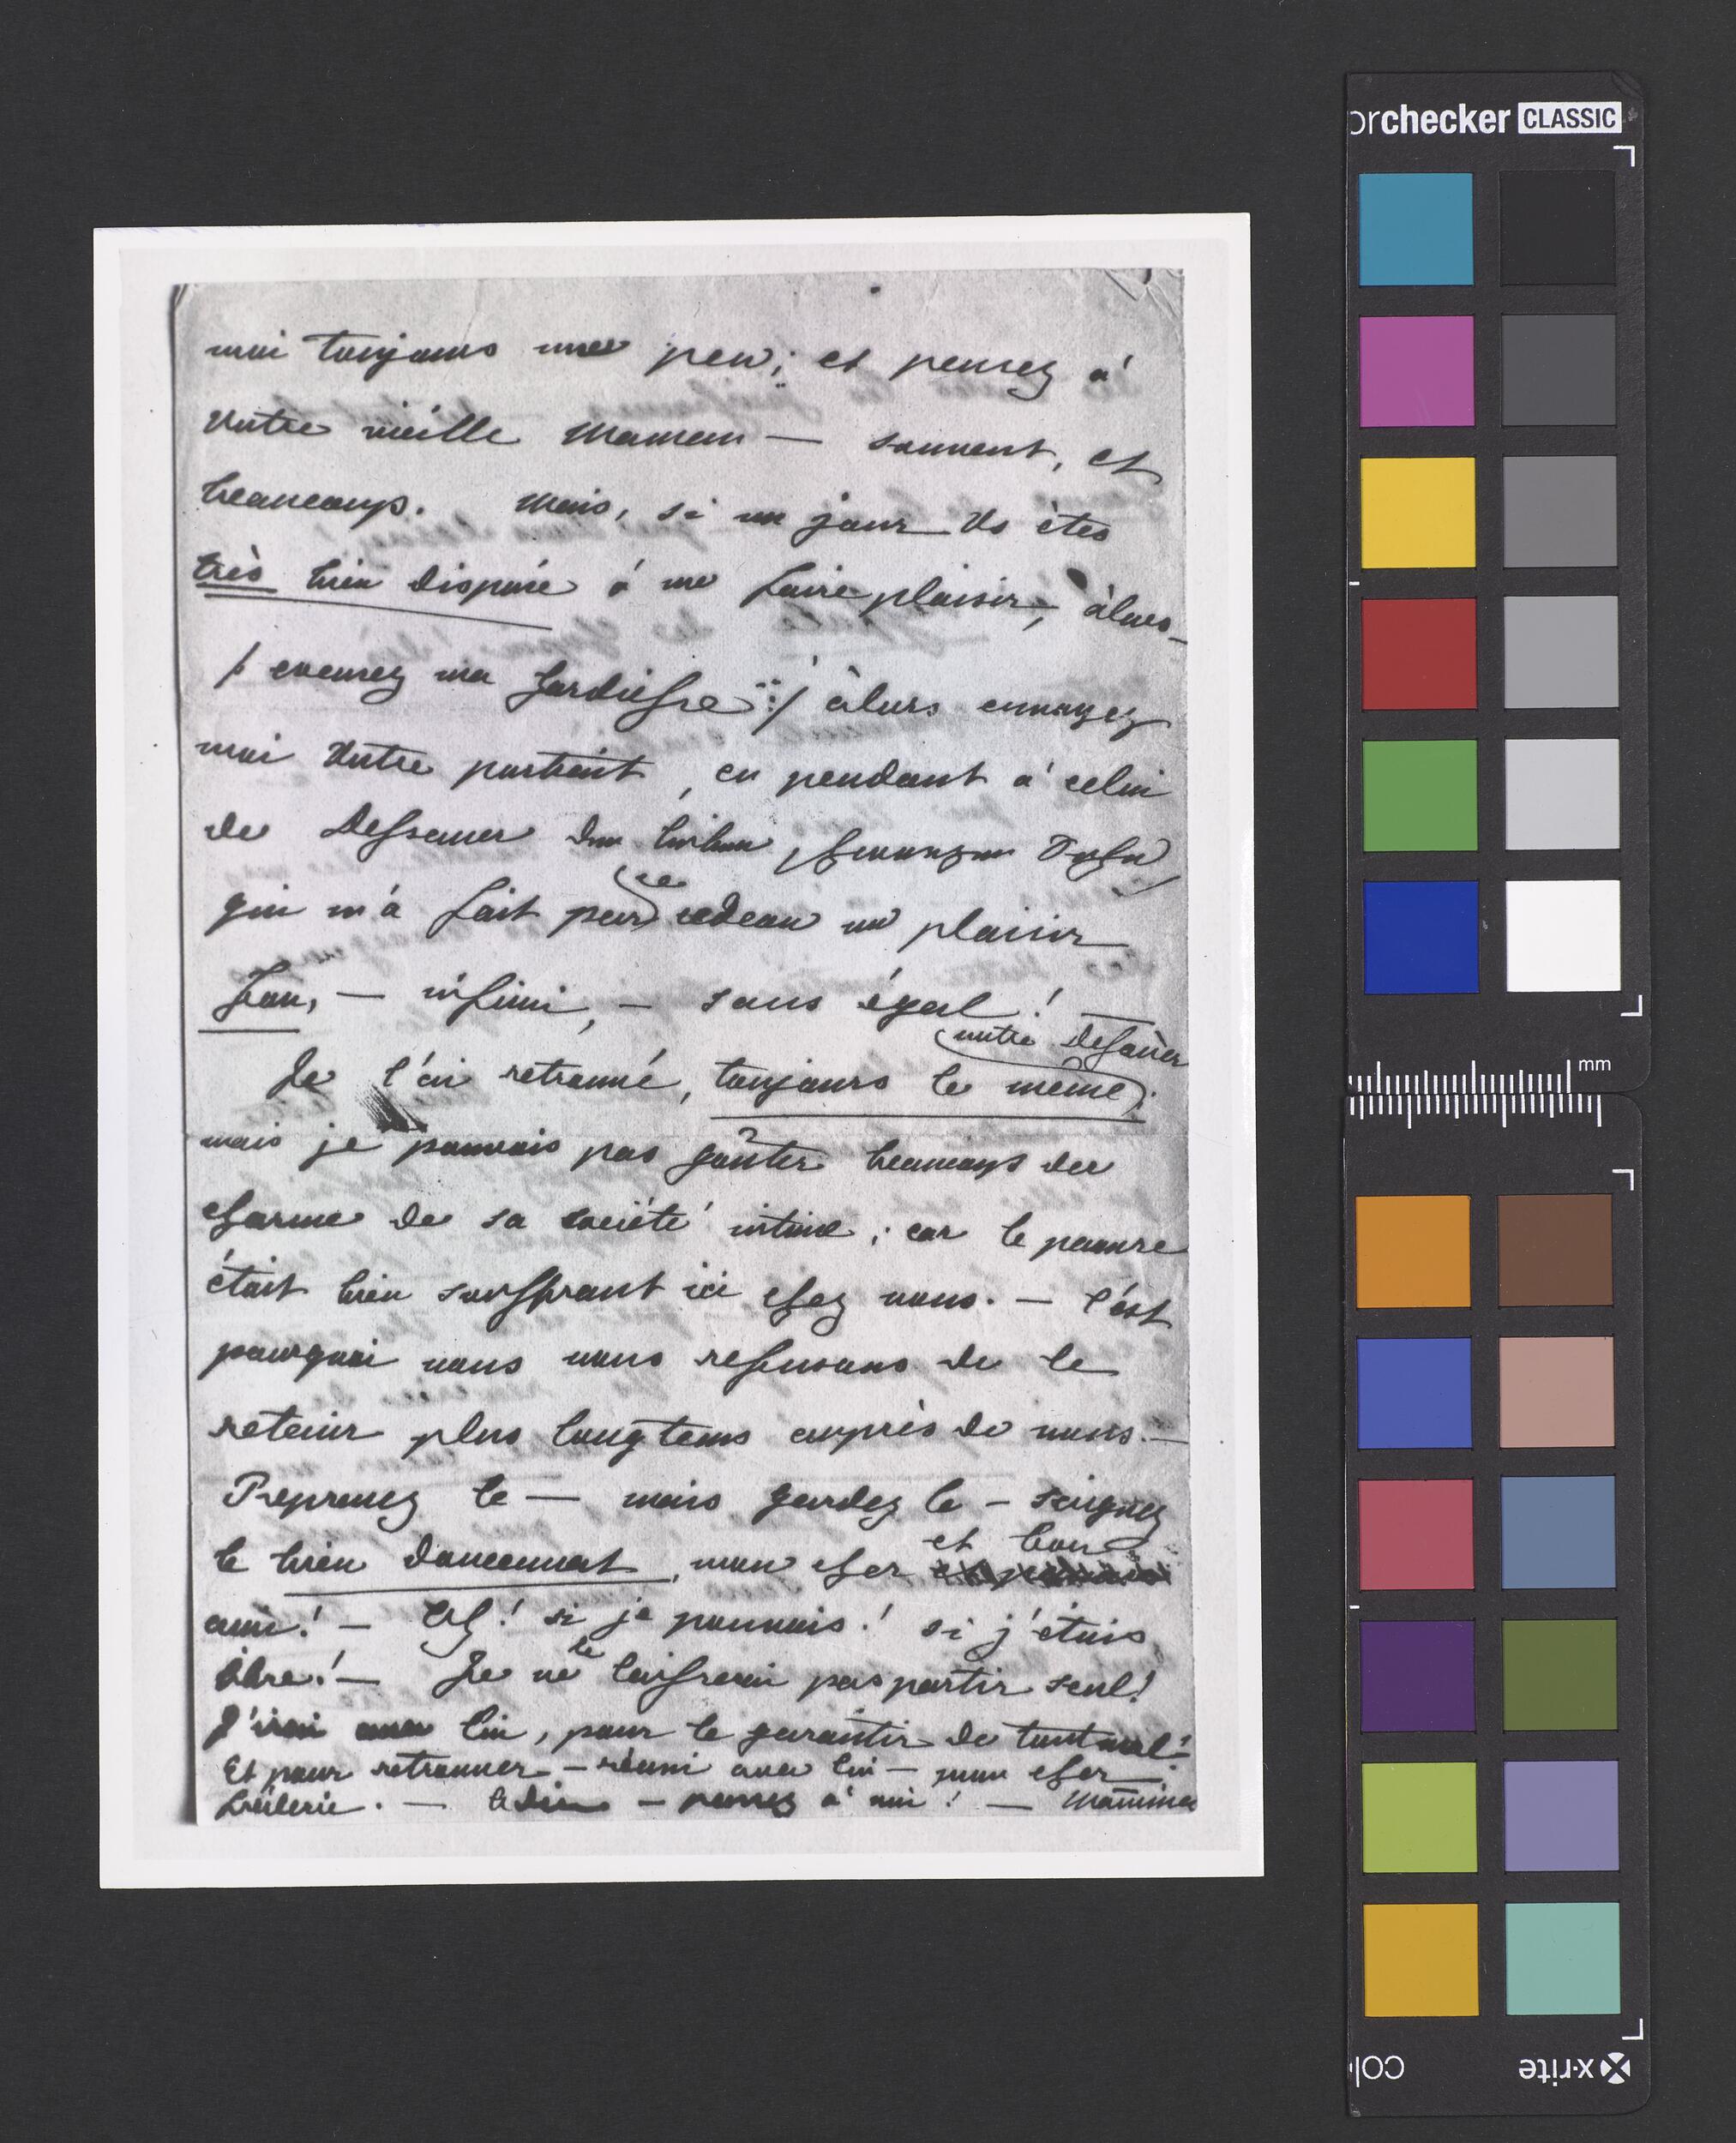 moi toujours une peu; et pensez à
Votre vieille Maman — souvent, et
beaucoup. Mais, si un jour Vs êtes
très bien disposée à me faire plaisir, — àlors —
/: exemsez ma hardiesse :/ àlors envoyez
moi Votre portrait, en pendant à celui
de Dessauer du hibou,
qui m'a fait par ce cedeau un plaisir
fou, — infini, — sans égal! —
Je l'ai retrouvé, toujours le même, (notre Dessauer)
mais je pouvais pas goûter beaucoup du
charme de sa société intime; car le pauvre
était bien souffrant ici chez nous. — C'est
pourquoi nous nous refusons de le
retenir plus longtems auprès de nous. —
Reprenez le — mais gardez le — soignez
le bien doucement, mon cher et bon
ami! — Ach! si je pouvais! si j'étais
libre! — Je ne le laisserai pas partir seul!
J'irai avec lui, pour le garantir de tout mal!
Et pour retrouver — réuni avec lui — mon cher
— Adieu — pensez à moi! — Mamma
orchecker CLASSIC
mm
x·rite
col